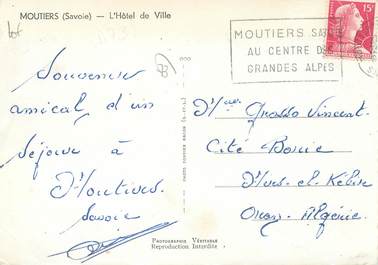 MOUTIERS (Savoie) — L'Hôtel de Ville
MOUTIERS SAVOIE
AU CENTRE DES
GRANDES ALPES
15F
Souvenir
amical d'un
séjour à
Moutiers
Savoie
Grosso Vincent
Cité Borie
Mers-el-Kébir
Oran-Algérie
PHOTOGRAPHIE VÉRITABLE
Reproduction Interdite